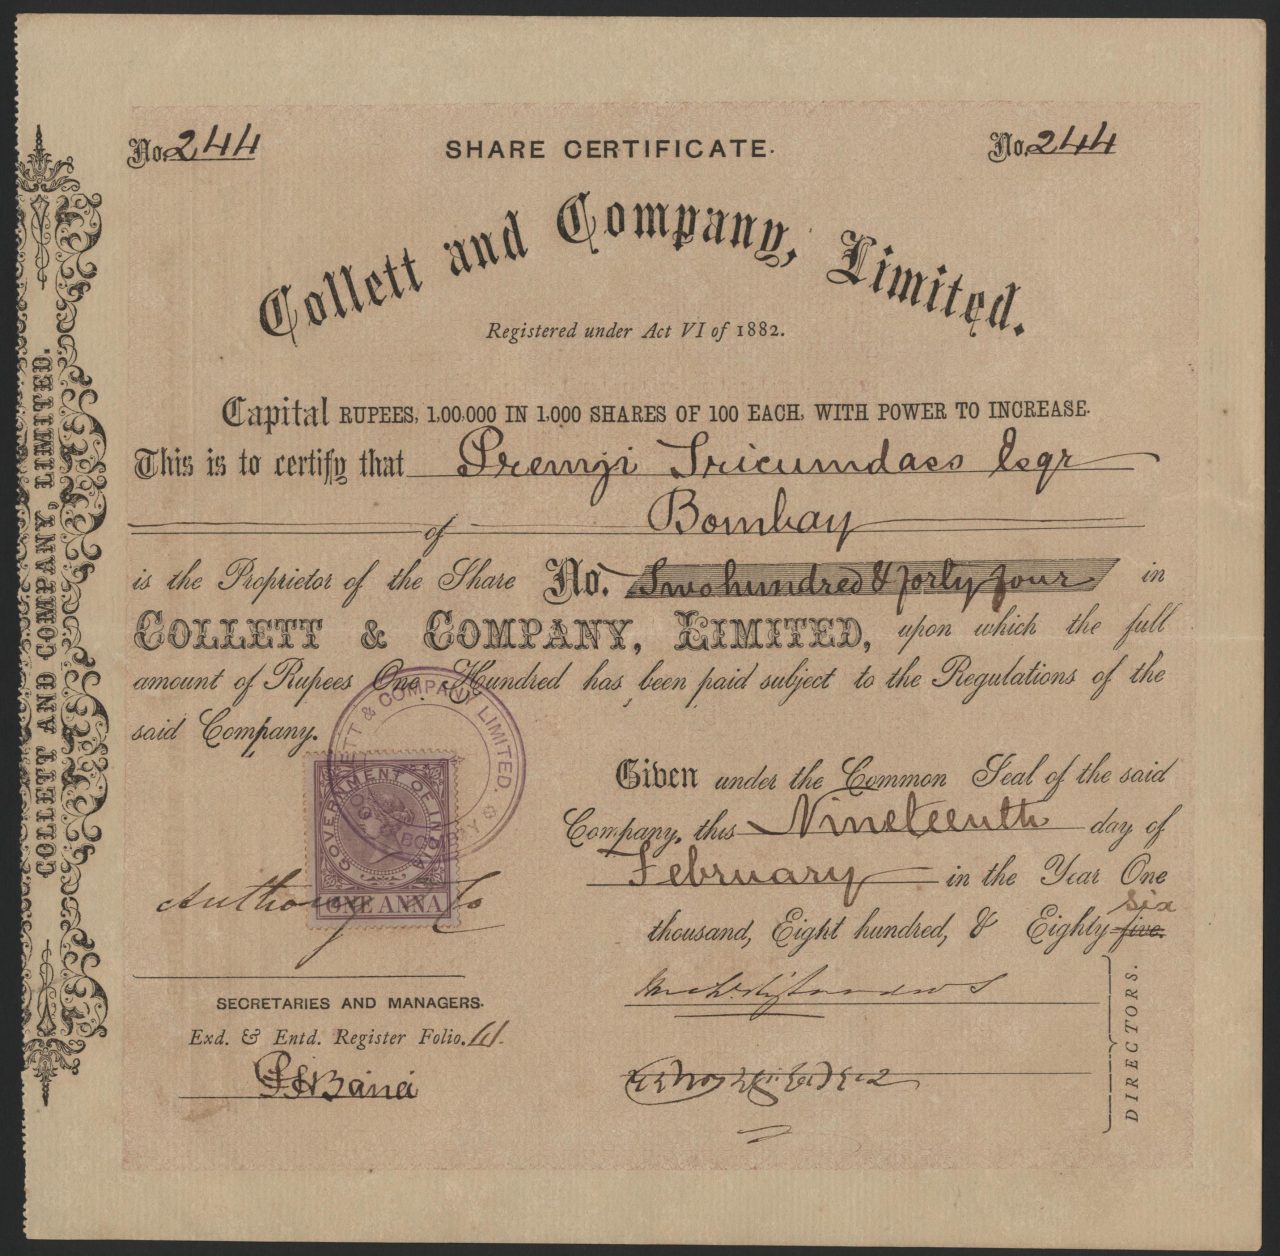 No. 244 SHARE CERTIFICATE. No. 244
Collett and Company, Limited.
Registered under Act VI of 1882.
Capital RUPEES, 1,00,000 IN 1,000 SHARES OF 100 EACH, WITH POWER TO INCREASE.
This is to certify that Premji Tricumdass Esqr
of Bombay
is the Proprietor of the Share No. Two hundred & forty four in
COLLETT & COMPANY, LIMITED, upon which the full
amount of Rupees One Hundred has been paid subject to the Regulations of the
said Company.
Given under the Common Seal of the said
Company, this Nineteenth day of
February in the Year One
six
thousand, Eight hundred, & Eighty five.
COLLETT & COMPANY LIMITED.
BOMBAY
GOVERNMENT OF INDIA
ONE ANNA
Anthony Co
SECRETARIES AND MANAGERS.
Exd. & Entd. Register Folio.
DIRECTORS.
COLLETT AND COMPANY, LIMITED.